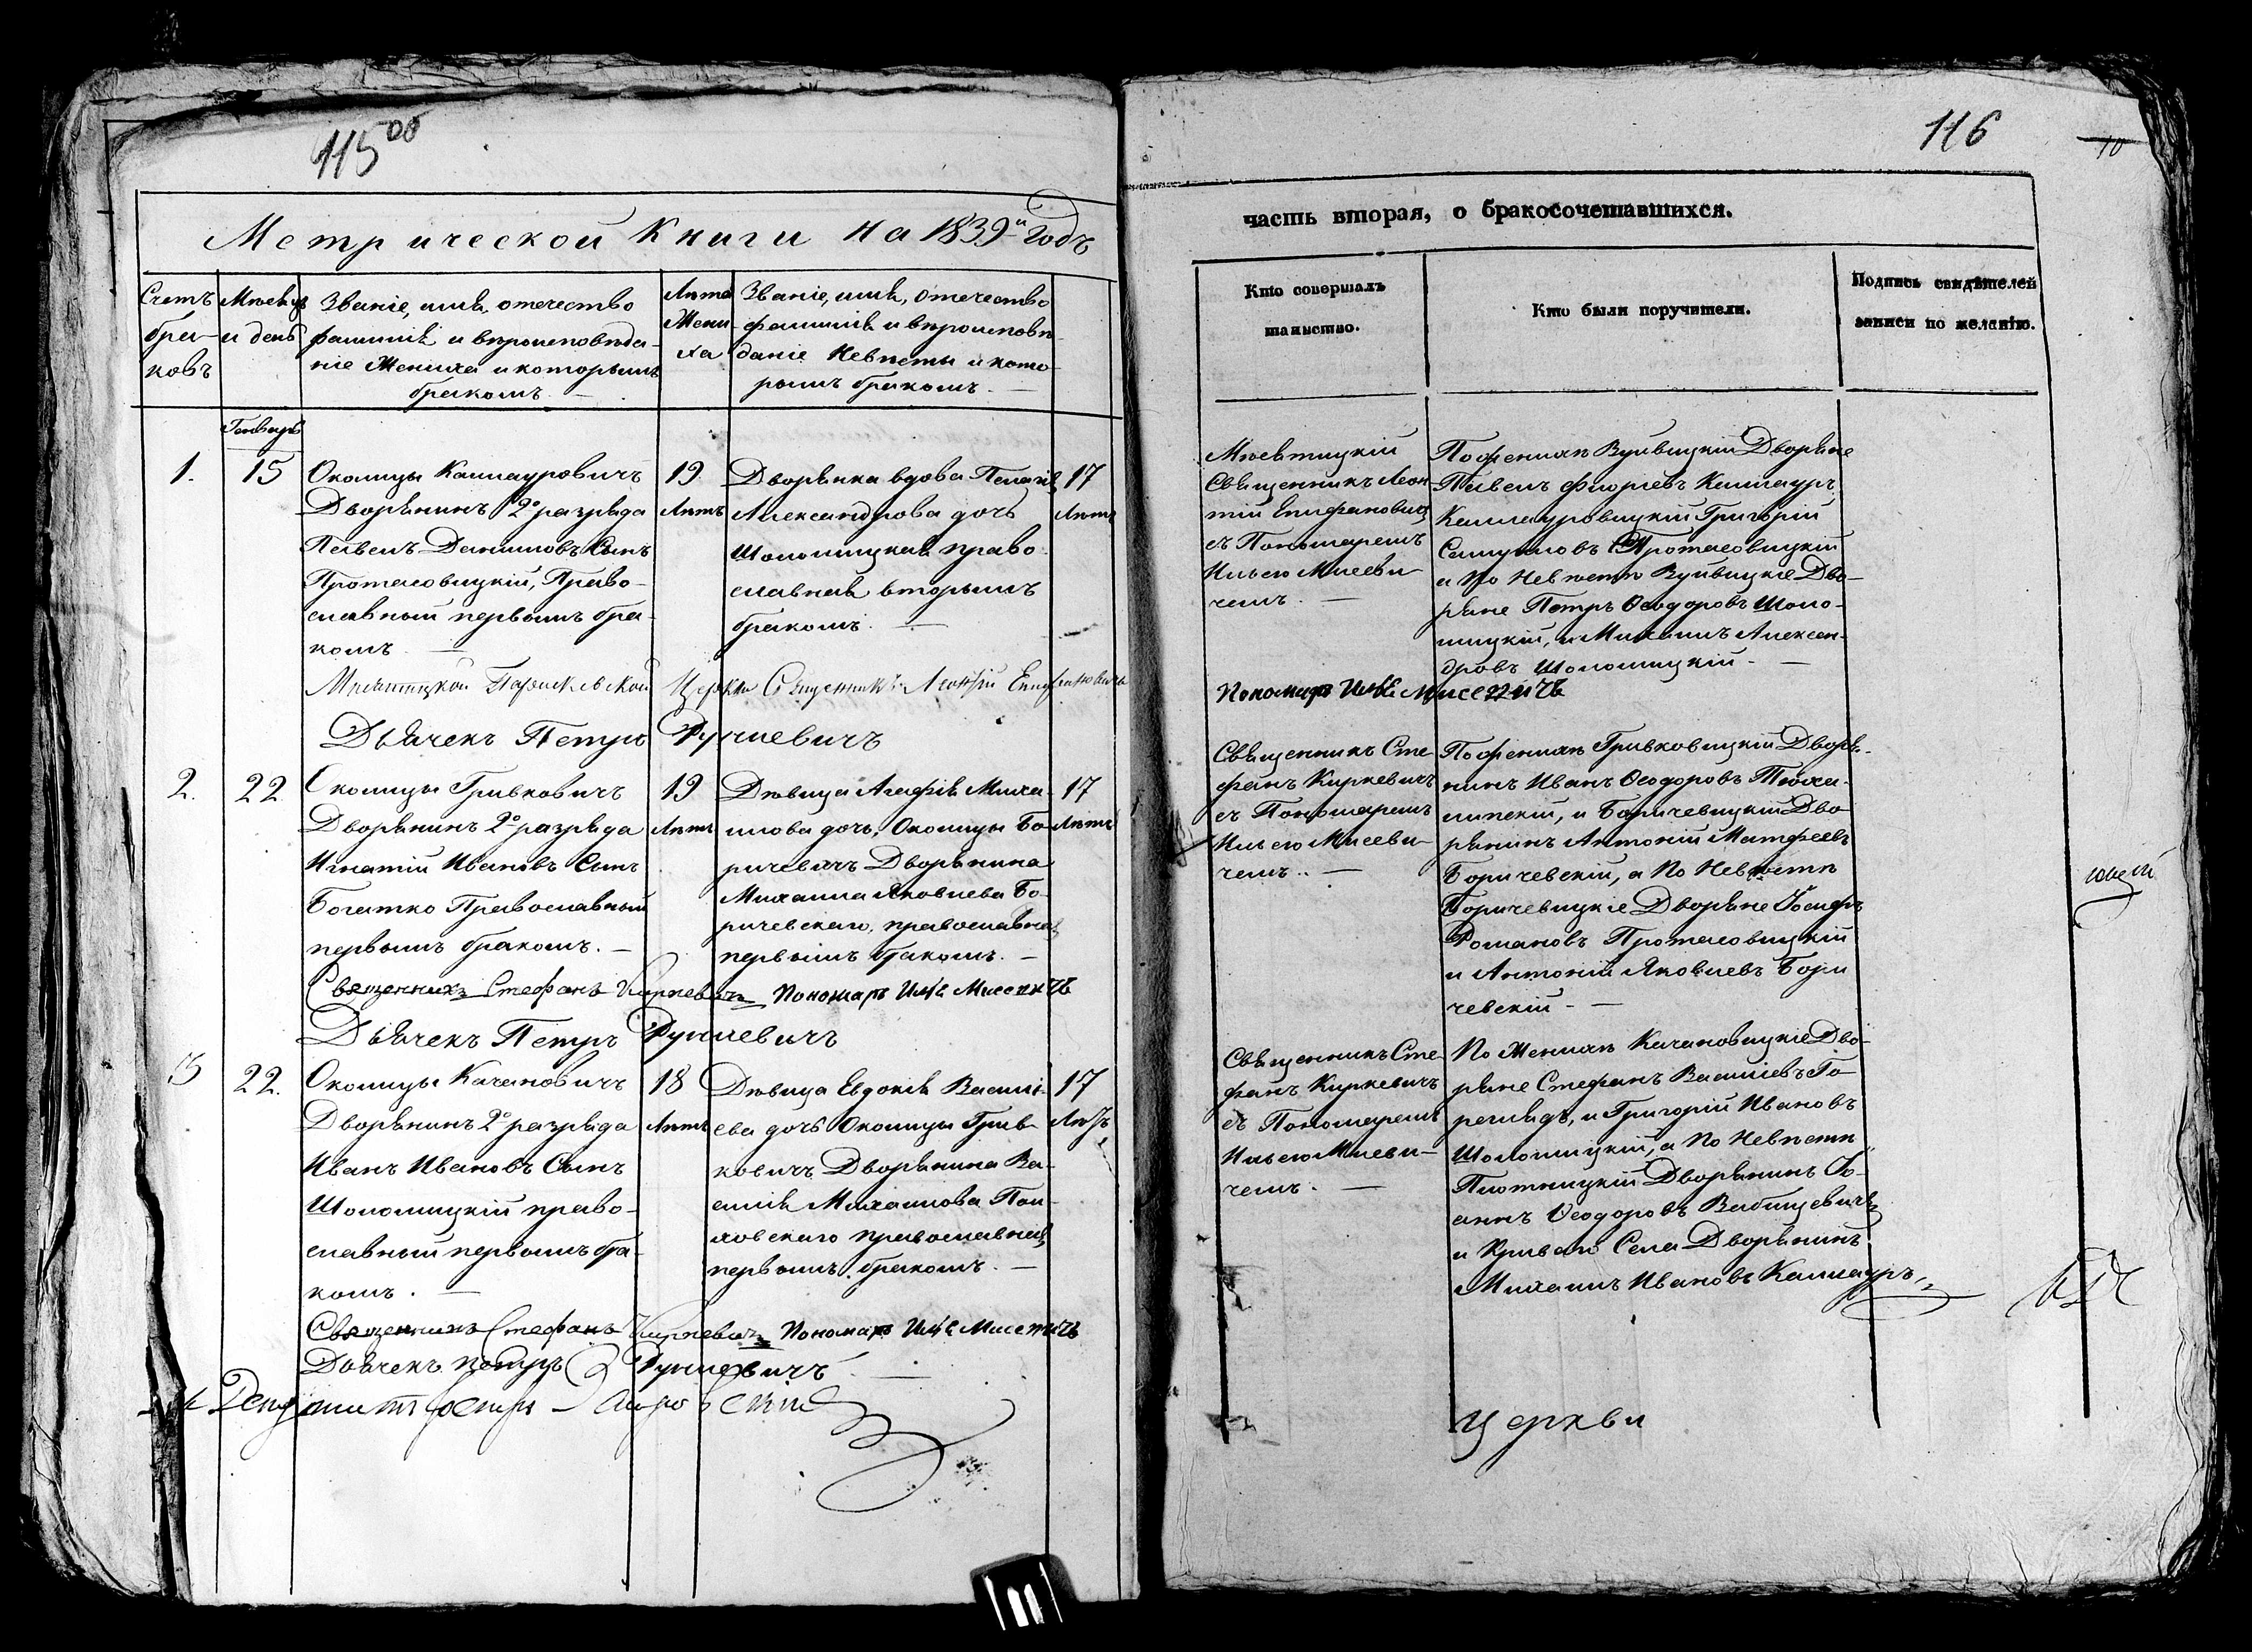 115 об
Метрической Книги на 1839й Годъ
Счетъ браковъ
Мѣсяцъ и день
Званіе, имя, отечество
фамилія и вѣроисповѣда-
ніе Жениха и которымъ
бракомъ. —
Лѣта
Жени-
ха
Званіе, имя, отечество
фамилія и вѣроисповѣ-
даніе Невѣсты и кото-
рымъ бракомъ. —
Генварь
1.
15
Околицы Каллауровичъ
Дворянинъ 2о разряда
Павелъ Даниловъ Сынъ
Протасовицкій, Право-
славный первымъ бра-
комъ. —
19
Лѣтъ
Дворянка вдова Пелагія
Александрова дочь
Шоломицкая право-
славная вторымъ
бракомъ. —
17
Лѣтъ
Парискевской Церкви Священникъ Леонтій Епифановичъ
Дьячекъ Петръ Рункевичъ
2.
22
Околицы Гривковичъ
Дворянинъ 2о разряда
Игнатій Ивановъ Сынъ
Богатко Православный
первымъ бракомъ. —
19
Лѣтъ
Дѣвица Агафія Миха-
илова дочь, Околицы Бо-
ричевичъ Дворянина
Михаила Яковлева Бо-
ричевскаго, православная
первымъ бракомъ. —
17
Лѣтъ
Священникъ Стефанъ Киркевичъ Пономарь Илья Мисевичъ
Дьячекъ Петръ Рункевичъ
3
22.
Околицы Качановичъ
Дворянинъ 2о разряда
Иванъ Ивановъ Сынъ
Шоломицкій право-
славный первымъ бра-
комъ. —
18
Лѣтъ
Дѣвица Евдокія Василі-
ева дочь Околицы Грив-
ковичъ Дворянина Ва-
силія Михаилова
православная
первымъ бракомъ. —
17
Лѣтъ
Священникъ Стефанъ Киркевичъ Пономарь Илья Мисевичъ
Дьячекъ Петръ Рункевичъ
116
10
часть вторая, о бракосочетавшихся.
Кто совершалъ
таинство.
Кто были поручители.
Подпись свидѣтелей
записи по желанію.
Священникъ Леон-
тій Епифановичъ
съ Пономаремъ
Ильею Мисеви-
чемъ. —
По женихѣ Вуйвицкій Дворяне
Павелъ Каллауръ,
Каллауровицкій Григорій
Самуиловъ Протасовицкій
и по Невѣстѣ Вуйвицкіе Дво-
ряне Петръ Ѳеодоровъ Шоло-
мицкій, и Михаилъ Алексан-
дровъ Шоломицкій —
Пономарь Илья Мисевичъ
Священникъ Сте-
фанъ Киркевичъ
съ Пономаремъ
Ильею Мисеви-
чемъ. —
По женихѣ Гривковицкій Дворя-
нинъ Иванъ Ѳеодоровъ
и Боричевицкій Дво-
рянинъ Антоній Матфеевъ
Боричевскій, а по Невѣстѣ
Боричевицкіе Дворяне Іосифъ
Романовъ Протасовицкій
и Антоній Яковлевъ Бори-
чевскій —
Священникъ Сте-
фанъ Киркевичъ
съ Пономаремъ
Ильею Мисеви-
чемъ. —
По Женихѣ Качановицкіе Дво-
ряне Стефанъ Василіевъ Го-
реглядъ, и Григорій Ивановъ
Шоломицкій, а по Невѣстѣ
Плотницкій Дворянинъ Іо-
аннъ Ѳеодоровъ Вабищевичъ
и Криваго Села Дворянинъ
Михаилъ Ивановъ Каллауръ
церкви